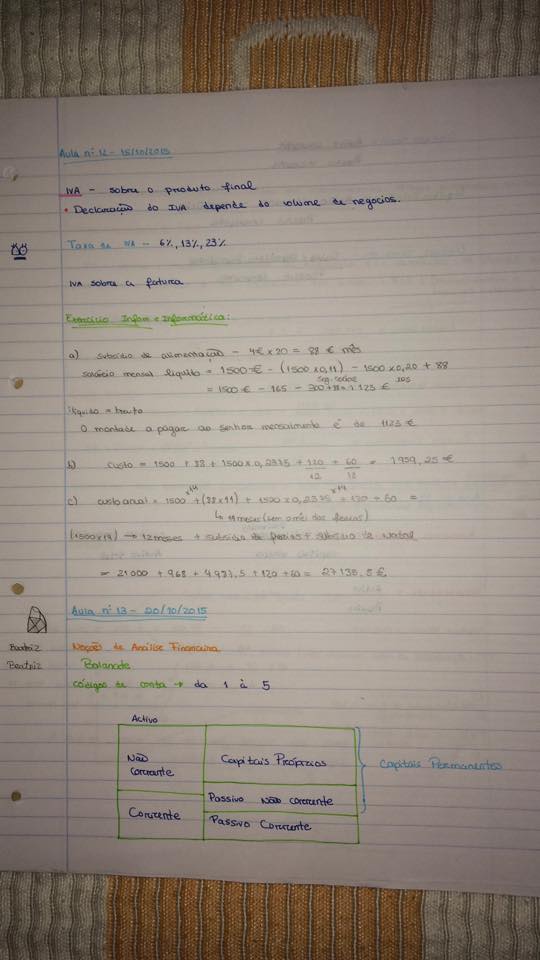 Aula nº 12 - 15/10/2015
IVA - sobre o produto final
• Declaração do IVA depende do volume de negócios.
Taxa de IVA - 6%, 13%, 23%
IVA sobre a fatura
Exercício Infom e Informática:
a) subsídio de alimentação - 4€ x 20 = 88 € mês
salário mensal líquido = 1500 € - (1500 x 0,11) - 1500 x 0,20 + 88
= 1500 € - 165 - 300 + 88 = 1.123 €
Seg. social
líquido = bruto
O montade a pagar ao senhor mensalmente é de 1123 €
b) custo = 1500 + 88 + 1500 x 0,2375 + 120/12 + 60/12 = 1959,25 €
c) custo anual = 1500 x14 + (88 x 11) + 1500 x 0,2375 x14 + 120 + 60 =
↳ 11 meses (sem o mês das férias)
(1500 x 14) → 12 meses + subsídio de férias + subsídio de natal
= 21000 + 968 + 4987,5 + 120 + 60 = 27135,5 €
Aula nº 13 - 20/10/2015
Beatriz
Noção de Análise Financeira
Beatriz
Balancete
Códigos de conta → da 1 à 5
Activo
Não corrente
Capitais Próprios
Capitais Permanentes
Passivo Não corrente
Corrente
Passivo Corrente